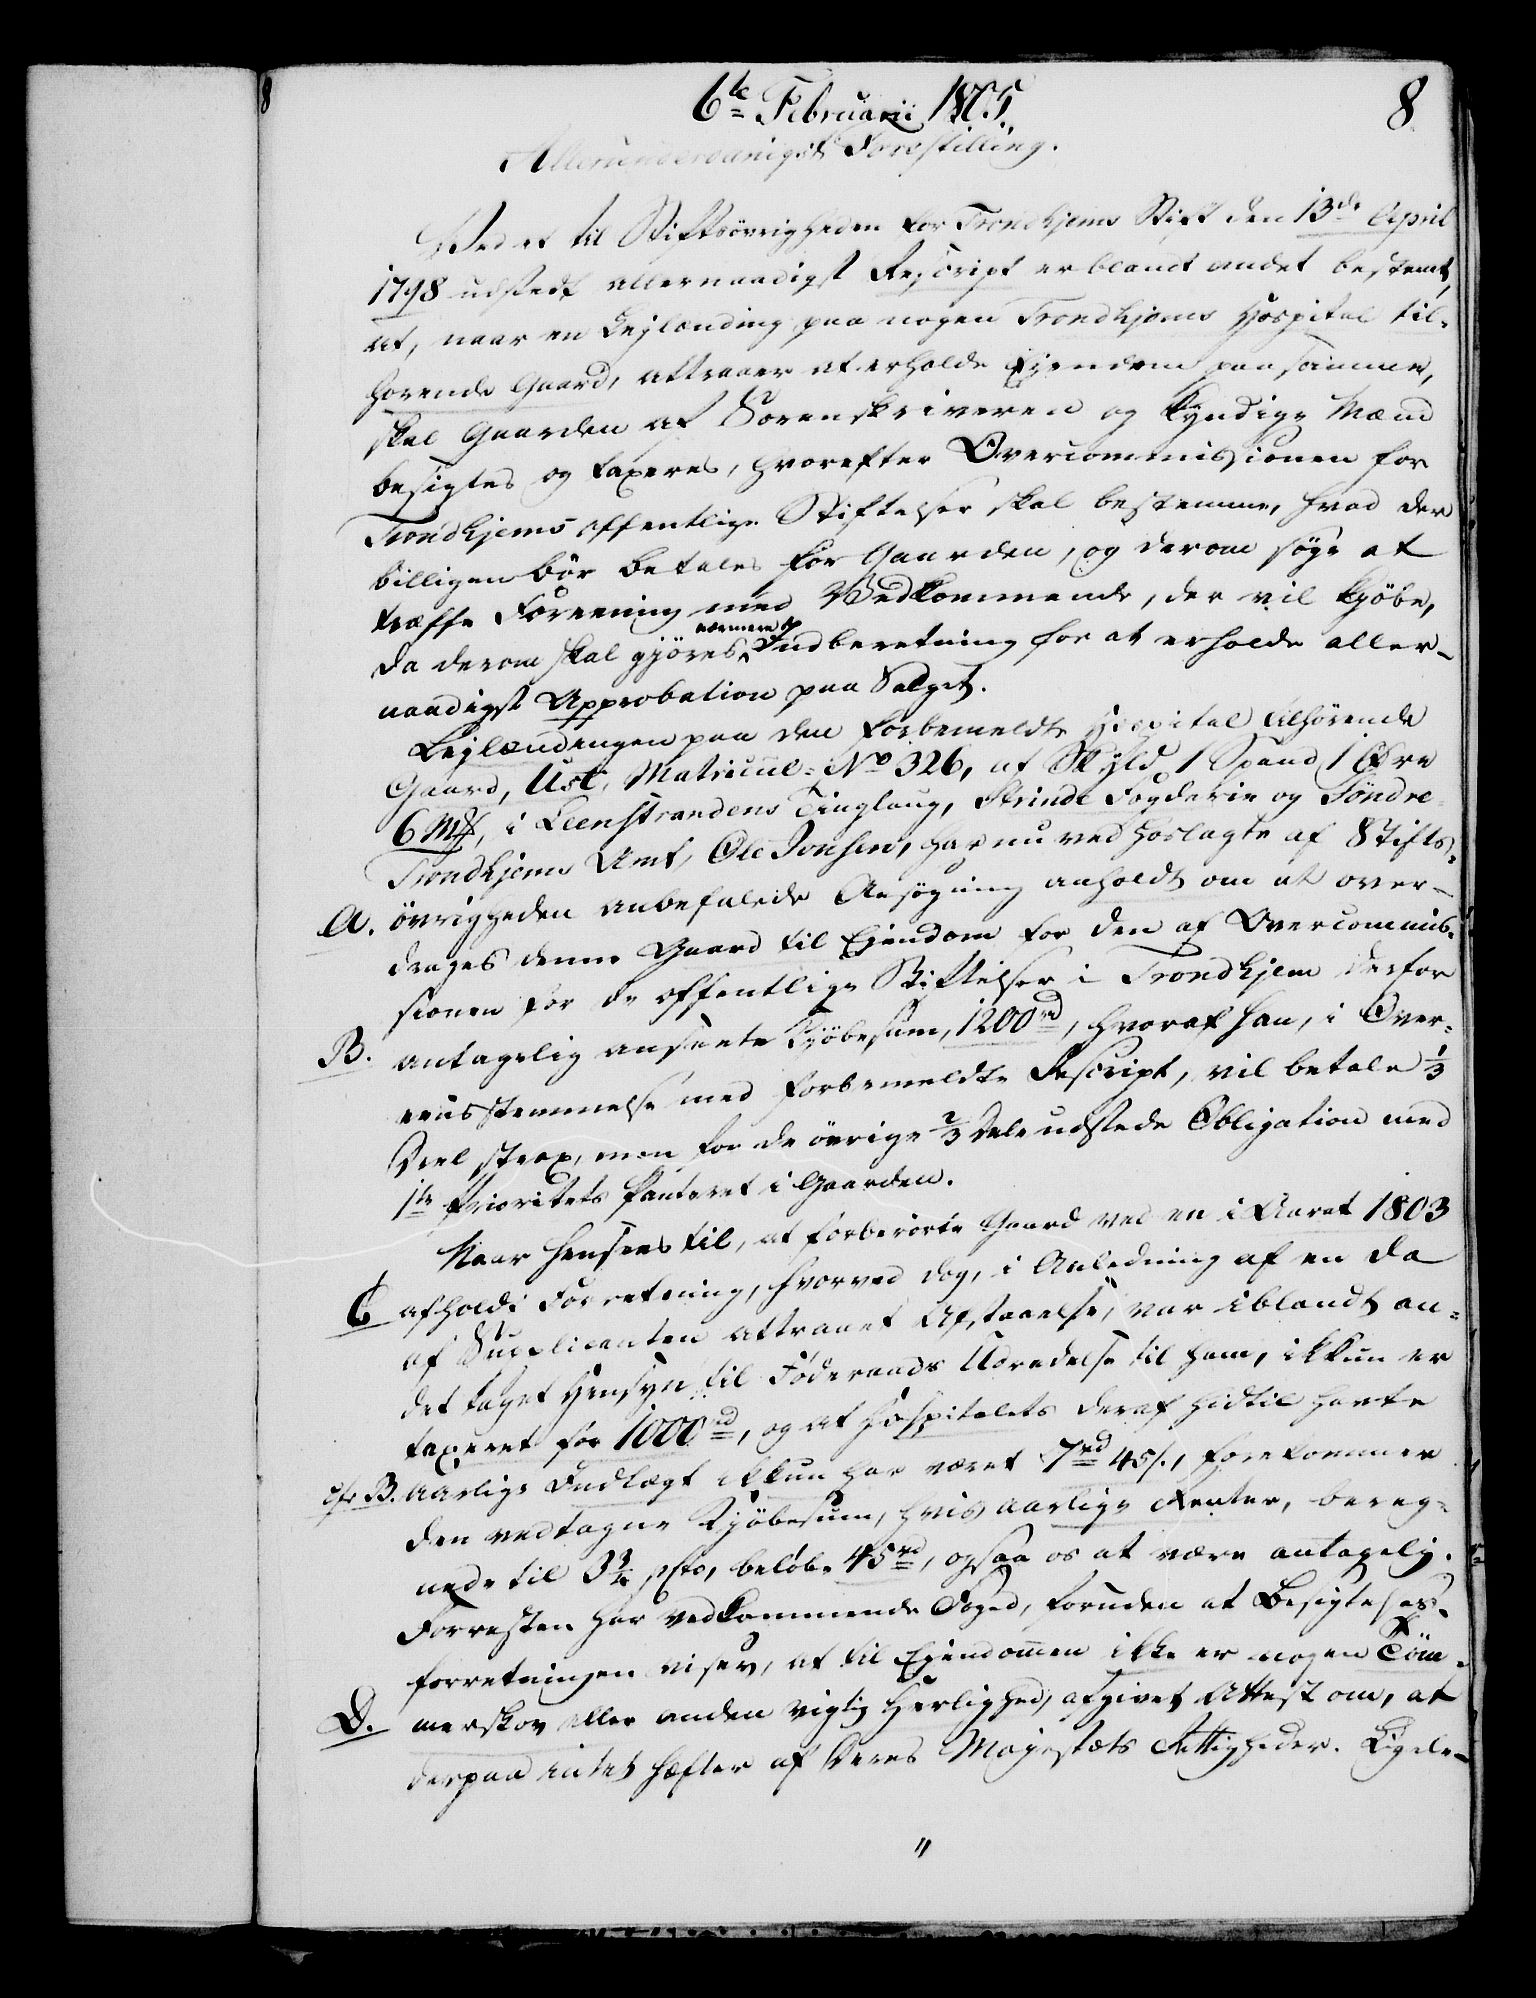 8
6te Februarii 1805.
8
Allerunderdanigst Forestilling.
Ved et til Stiftsövrigheden for Trondhjems Stift den 13de April
1798 udstedt allernaadigst Rescript er blandt andet bestemt,
at, naar en Lejlænding paa nogen Trondhjems Hospital til-
hörende Gaard, attraaer at erholde Ejendom paa samme,
skal Gaarden af Sorenskriveren og kyndige Mænd
besigtes og taxeres, hvorefter Overcommissionen for
Trondhjems offentlige Stiftelser skal bestemme, hvad der
billigen bör betales for Gaarden, og derom söge at
træffe Forening med Vedkommende, der vil kjöbe,
nærmere
da derom skal gjöres Indberetning for at erholde aller-
naadigst Approbation paa Salget.
Lejlændingen paa den forbemeldte Hospital tilhörende
Gaard, Ust, Matricul-No 326, af Skyld 1 Spand 1 Öre
6 Mkl, i Leenstrandens Tinglaug, Strinde Fogderie og Söndre
Trondhjems Amt, Ole Jonsen, har nu ved hoslagte af Stifts-
A. övrigheden anbefalede Ansögning anholdt om at over-
drages denne Gaard til Ejendom for den af Overcommis-
sionen for de offentlige Stiftelser i Trondhjem derfor
B. antagelig ansete Kjöbesum, 1200 rd, hvoraf han, i Over-
eensstemmelse med forbemeldte Rescript, vil betale 1/3
Deel strax, men for de övrige 2/3 Dele udstede Obligation med
1te Prioritets Panteret i Gaarden.
Naar hensees til, at forberörte Gaard ved en i Aaret 1803
C afholdt Forretning, hvorved dog, i Anledning af en da
af Supplicanten attraaet Afstaaelse, var iblandt an-
det taget Hensyn til Föderaads Udredelse til ham, ikkun er
taxeret for 1000 rd, og at Hospitalets deraf hidtil havte
cfr B. aarlige Indtægt ikkun har været 7 rd 45 s., forekommer
den vedtagne Kjöbesum, hvis aarlige Renter, bereg-
nede til 3 3/4 pCto, belöbe 45 rd, ogsaa os at være antagelig.
Forresten har vedkommende Foged, foruden at Besigtelses-
forretningen viser, at til Ejendommen ikke er nogen Töm-
D. merskov eller anden vigtig Herlighed, afgivet Attest om, at
derpaa intet hæfter af Deres Majestæts Rettigheder. Ligele-
"